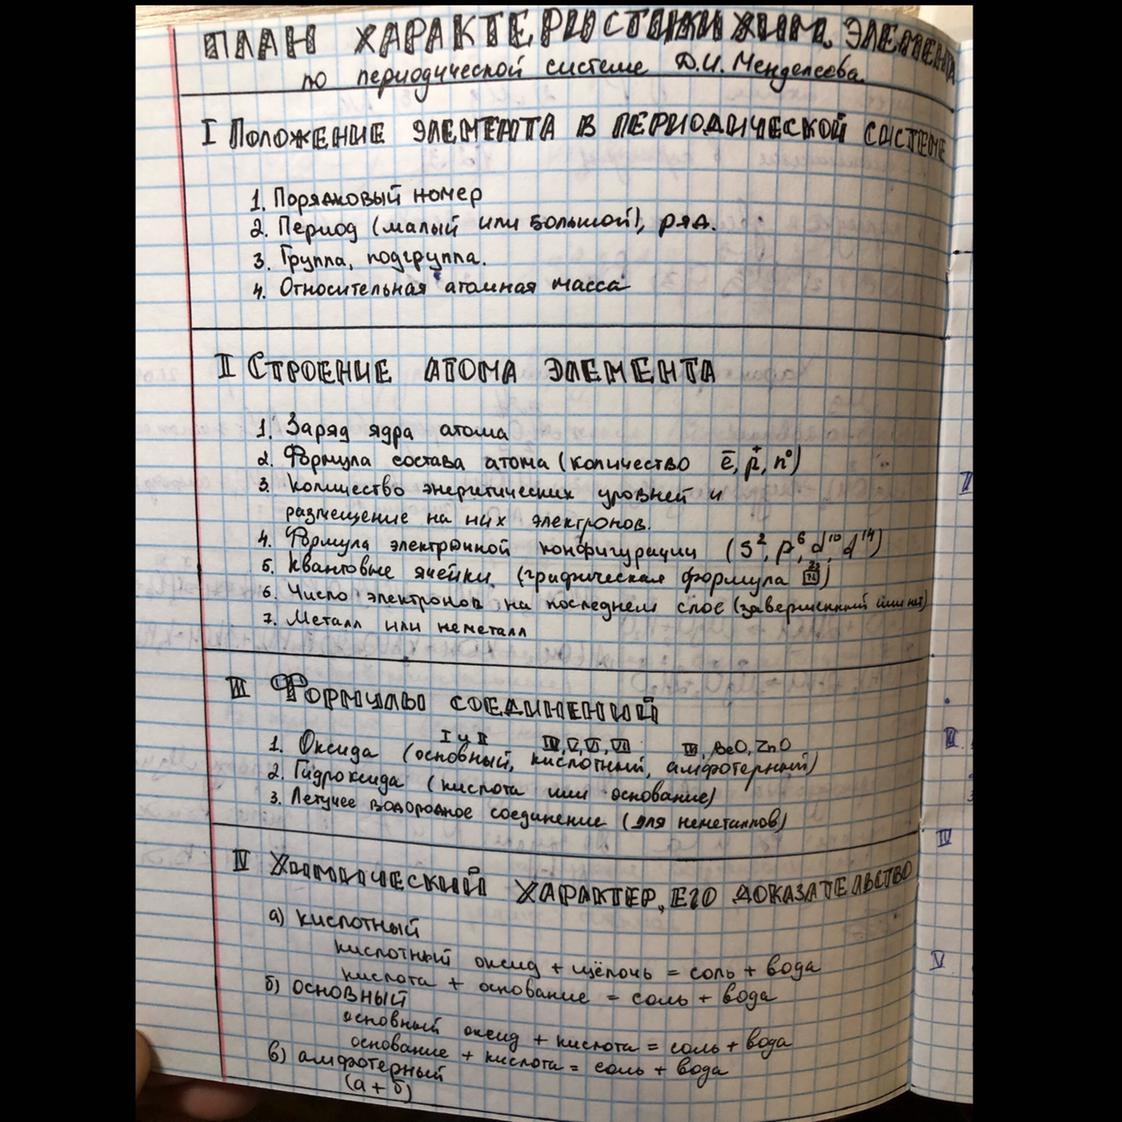 ПЛАН ХАРАКТЕРИСТИКИ ХИМ. ЭЛЕМЕНТА
по периодической системе Д.И. Менделеева
I ПОЛОЖЕНИЕ ЭЛЕМЕНТА В ПЕРИОДИЧЕСКОЙ СИСТЕМЕ
1. Порядковый номер
2. Период (малый или большой), ряд.
3. Группа, подгруппа.
4. Относительная атомная масса
II СТРОЕНИЕ АТОМА ЭЛЕМЕНТА
1. Заряд ядра атома
2. Формула состава атома (количество e⁻, p⁺, n⁰)
3. Количество энергетических уровней и
размещение на них электронов.
4. Формула электронной конфигурации (s², p⁶, d¹⁰, d¹⁴)
5. Квантовые ячейки. (графическая формула)
6. Число электронов на последнем слое (завершенный или нет)
7. Металл или неметалл
III ФОРМУЛЫ СОЕДИНЕНИЙ
I и II IV, V, VI, VII III, BeO, ZnO
1. Оксида (основный, кислотный, амфотерный)
2. Гидроксида (кислота или основание)
3. Летучее водородное соединение (для неметаллов)
IV ХИМИЧЕСКИЙ ХАРАКТЕР, ЕГО ДОКАЗАТЕЛЬСТВО
а) кислотный
кислотный оксид + щёлочь = соль + вода
кислота + основание = соль + вода
б) основный
основный оксид + кислота = соль + вода
основание + кислота = соль + вода
в) амфотерный
(а + б)
IV
V